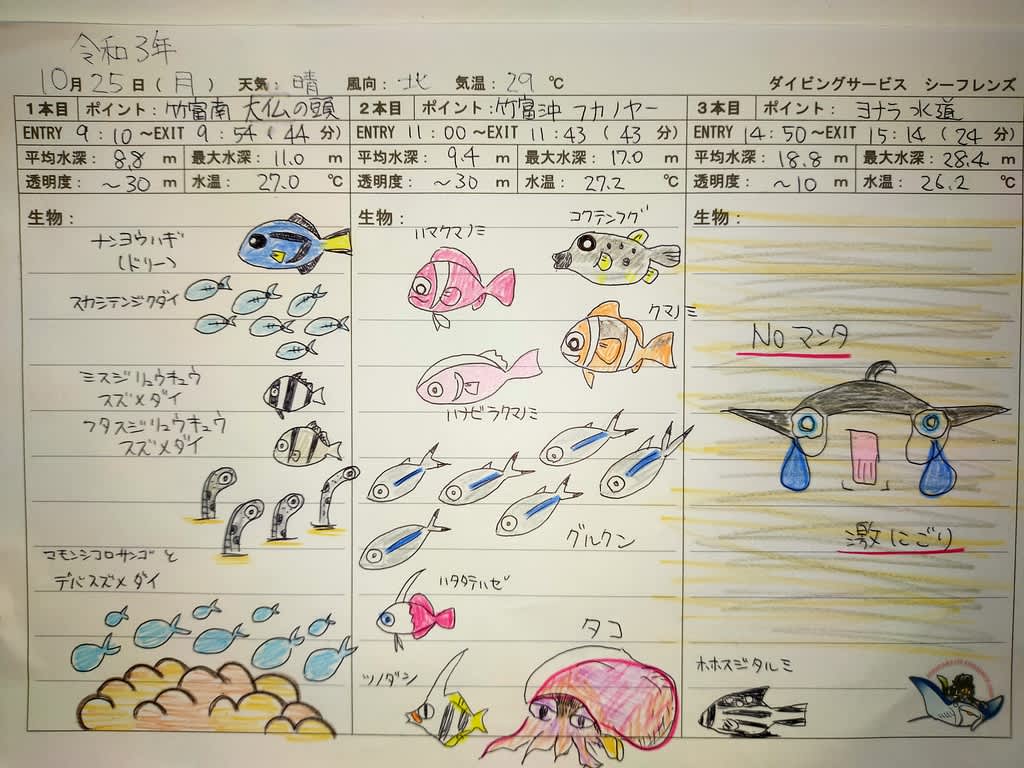 令和3年
10月25日(月) 天気:晴 風向:北 気温:29℃ ダイビングサービス シーフレンズ
1本目 ポイント:竹富南 大仏の頭
ENTRY 9:10~EXIT 9:54(44分)
平均水深:8.8m 最大水深:11.0m
透明度:~30m 水温:27.0℃
生物:
ナンヨウハギ
(ドリー)
スカシテンジクダイ
ミスジリュウキュウ
スズメダイ
フタスジリュウキュウ
スズメダイ
マモンシコロサンゴと
デバスズメダイ
2本目 ポイント:竹富沖 フカノヤー
ENTRY 11:00~EXIT 11:43(43分)
平均水深:9.4m 最大水深:17.0m
透明度:~30m 水温:27.2℃
生物:
コクテンフグ
ハマクマノミ
クマノミ
ハナビラクマノミ
グルクン
ハタタテハゼ
タコ
ツノダシ
3本目 ポイント:ヨナラ水道
ENTRY 14:50~EXIT 15:14(24分)
平均水深:18.8m 最大水深:28.4m
透明度:~10m 水温:26.2℃
生物:
Noマンタ
激にごり
ホホスジタルミ